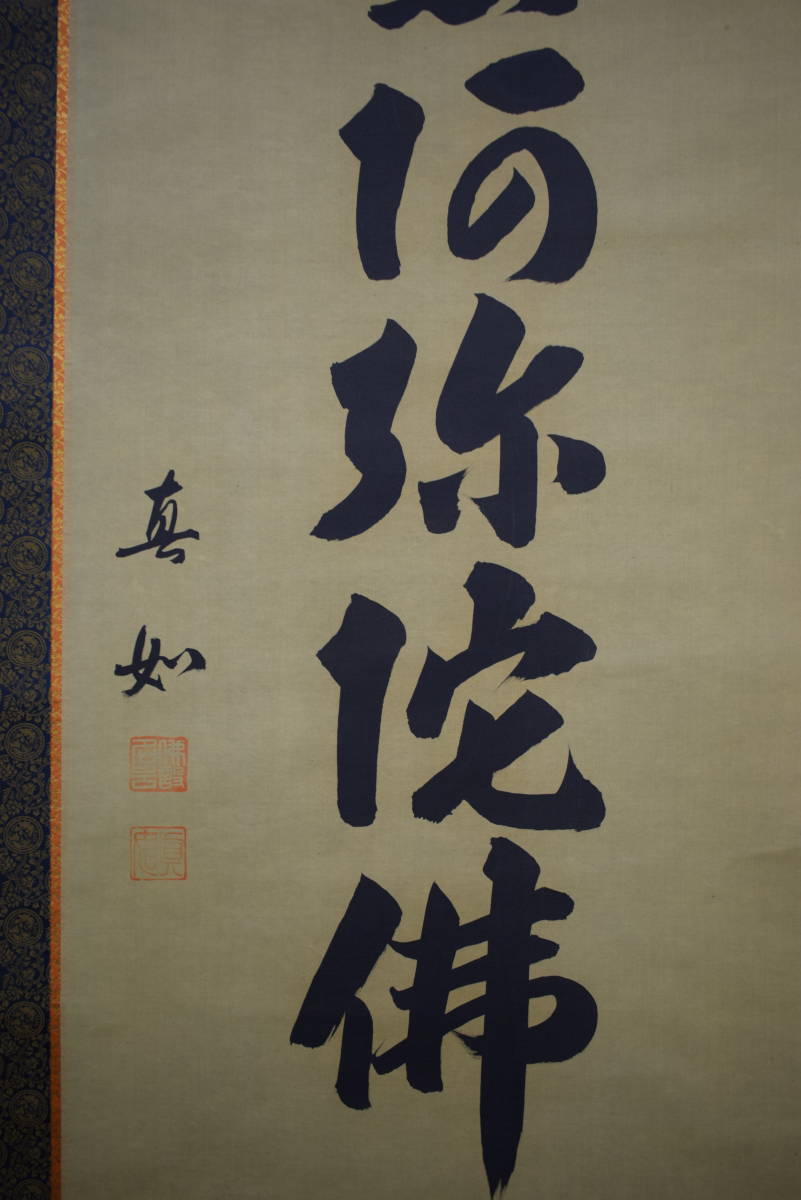 阿弥陀佛
真如